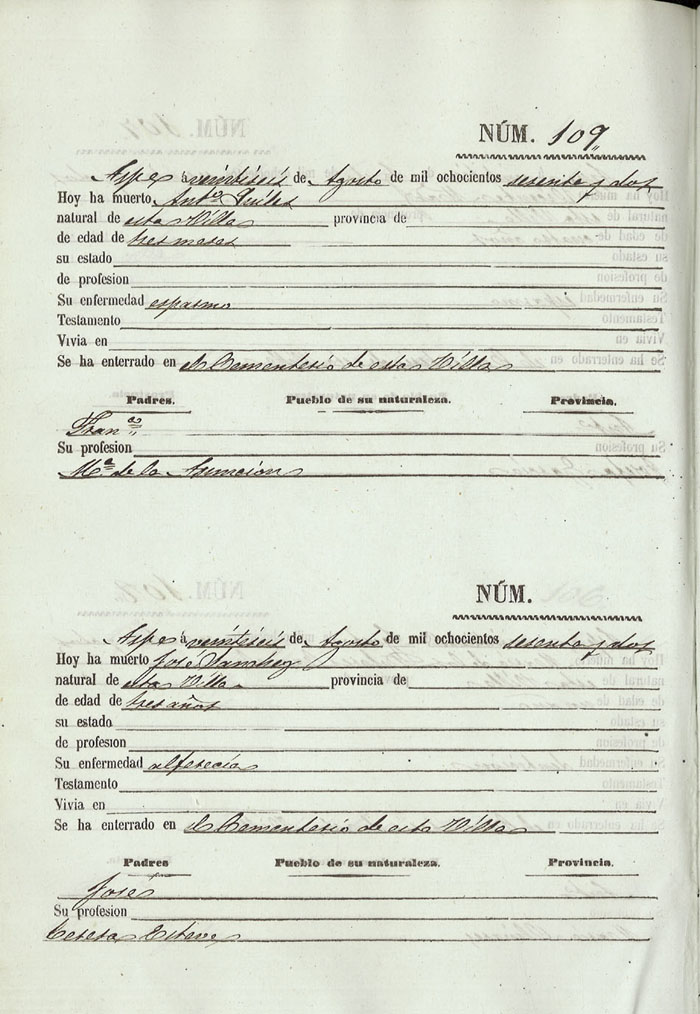 NÚM. 109
Aspe á veintiseis de Agosto de mil ochocientos sesenta y dos
Hoy ha muerto Ant.ª Quiles
natural de esta Villa provincia de
de edad de tres meses
su estado
de profesion
Su enfermedad espasmo
Testamento
Vivia en
Se ha enterrado en el Cementerio de esta Villa
Padres. Pueblo de su naturaleza. Provincia.
Fran.co
Su profesion
M.ª de la Asuncion
NÚM.
Aspe á veintiseis de Agosto de mil ochocientos sesenta y dos
Hoy ha muerto José Sanchez
natural de esta Villa provincia de
de edad de tres años
su estado
de profesion
Su enfermedad alferecia
Testamento
Vivia en
Se ha enterrado en el Cementerio de esta Villa
Padres Pueblo de su naturaleza. Provincia.
José
Su profesion
Teresa Esteve